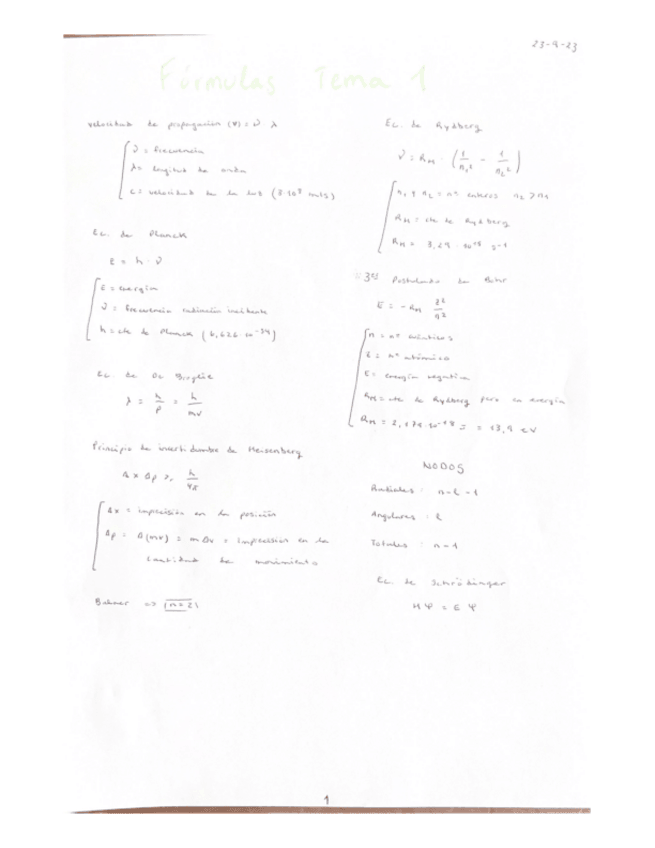 23-9-23
Fórmulas Tema 1
Velocidad de propagación (v) = ν · λ
ν = frecuencia
λ = longitud de onda
c = velocidad de la luz (3·10⁸ m/s)
Ec. de Planck
E = h · ν
E = energía
ν = frecuencia radiación incidente
h = cte de Planck (6,626·10⁻³⁴)
Ec. de De Broglie
λ = h/p = h/mv
Principio de incertidumbre de Heisenberg
Δx Δp ≥ h/4π
Δx = imprecisión en la posición
Δp = Δ(mv) = m Δv = imprecisión en la
cantidad de movimiento
Balmer => (n=2)
Ec. de Rydberg
ν = R_H · (1/n₁² - 1/n₂²)
n₁ y n₂ = nº enteros n₂ > n₁
R_H = cte de Rydberg
R_H = 3,29 · 10¹⁵ s⁻¹
3er Postulado de Bohr
E = - R_H Z²/n²
n = nº cuánticos
Z = nº atómico
E = energía negativa
R_H = cte de Rydberg pero en energía
R_H = 2,179·10⁻¹⁸ J = 13,6 eV
NODOS
Radiales: n-l-1
Angulares: l
Totales: n-1
Ec. de Schrödinger
H Ψ = E Ψ
1